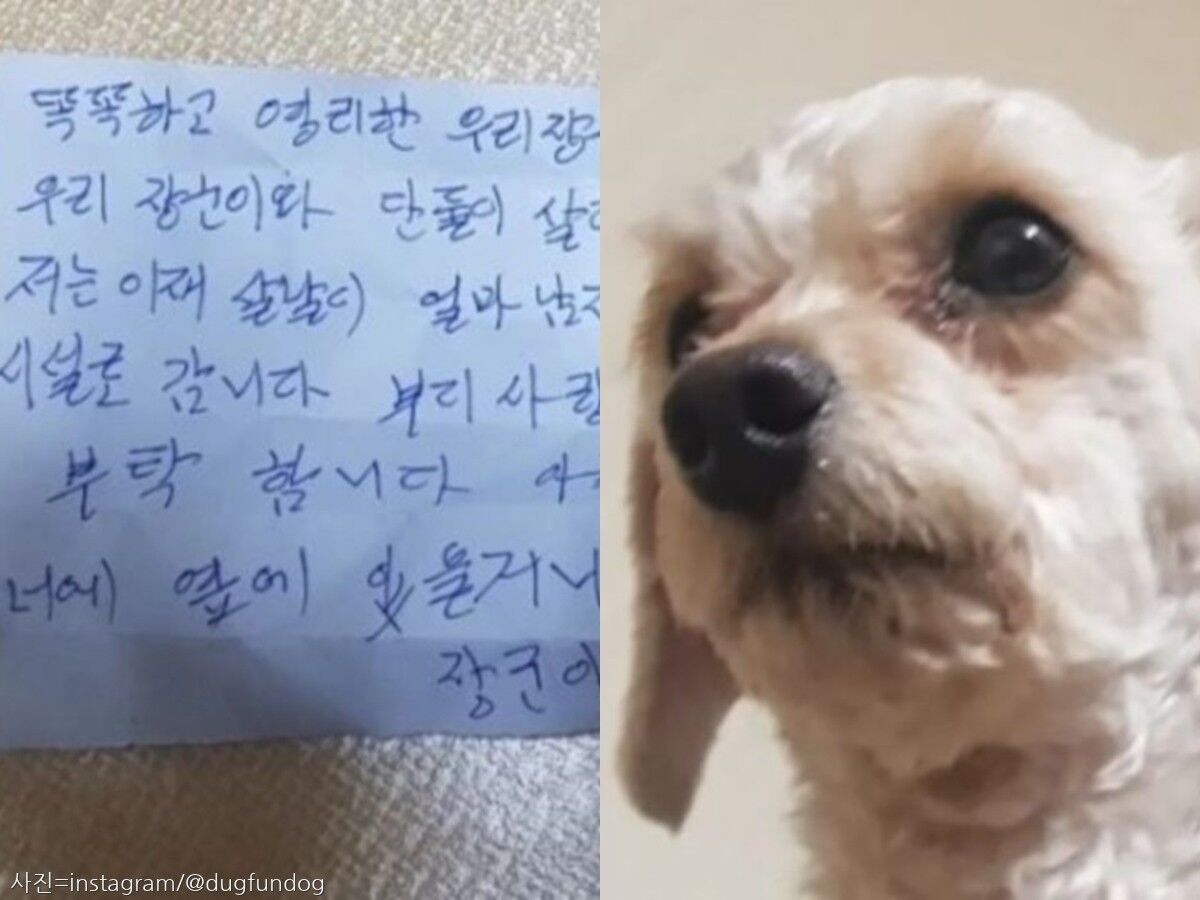 똑똑하고 영리한 우리장
우리 장군이와 단둘이 살
저는 이재 살날이 얼마 남지
시설로 갑니다 부디 사랑
부탁 합니다
너에 옆에 있을거니
장군이
사진=instagram/@dugfundog